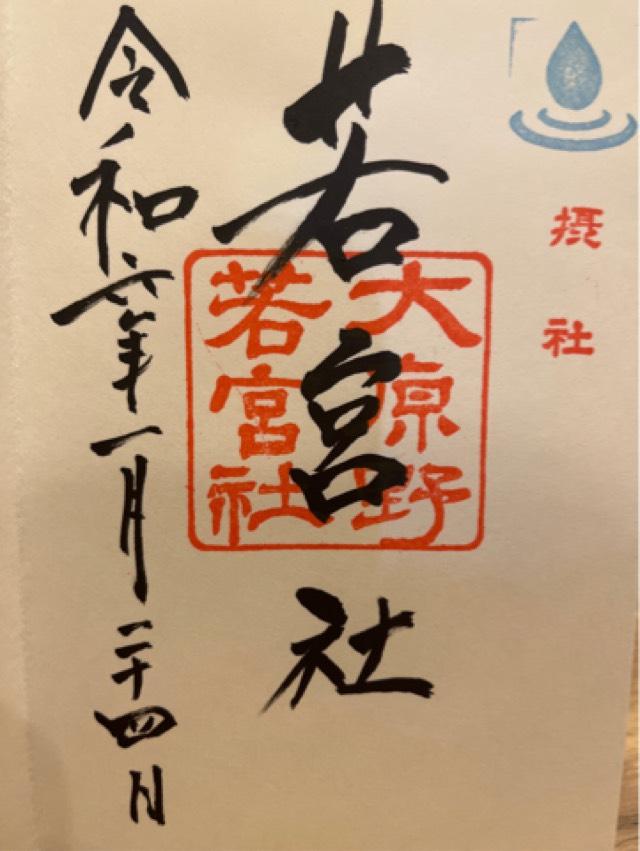 摂社
若宮社
大原野
若宮社
令和六年一月二十四日